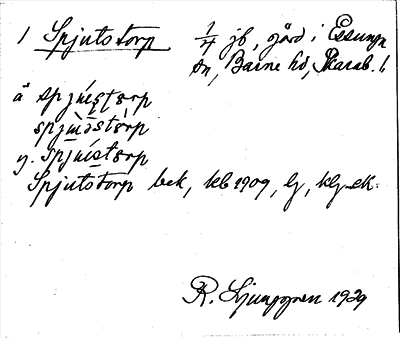 1 Spjutstorp 1/4 jb, gård i Essunga
sn, Barne hd, Skarab. l.
ä spjústorp
spjùstòrp
y. spjústorp
Spjutstorp bek, kb 1909, lg, klg, ek.
R. Ljunggren 1929